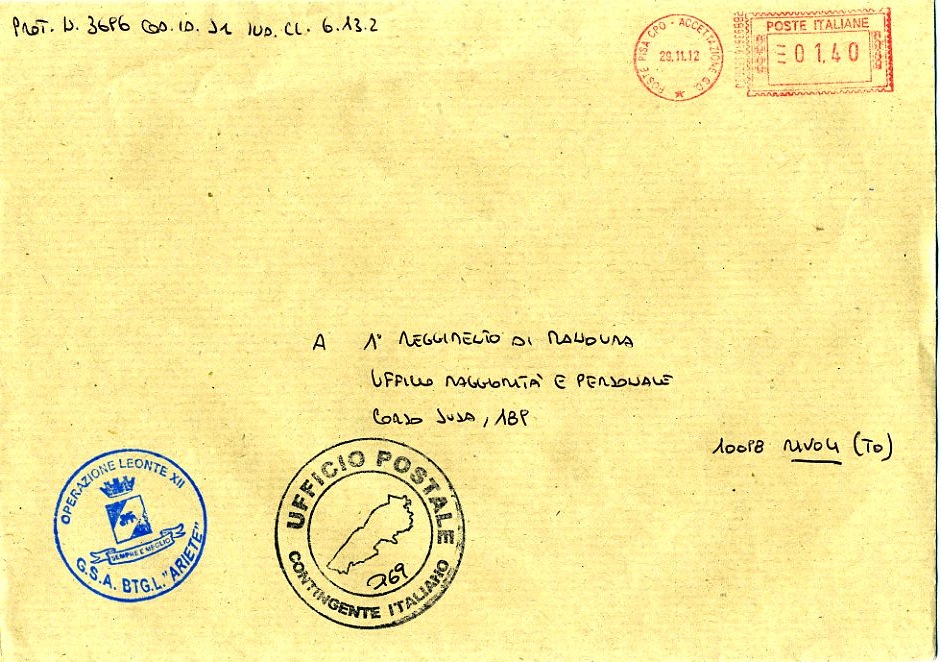 PROT. N. 3696 COD. ID. J1 IND. CL. 6.13.2
POSTE PISA CPO - ACCETTAZIONE G.C.
29.11.12
POSTE ITALIANE
01,40
A 1° REGGIMENTO DI MANOVRA
UFFICIO MAGGIORITÀ E PERSONALE
CORSO SUSA, 189
10098 RIVOLI (TO)
OPERAZIONE LEONTE XII
SEMPRE E MEGLIO
G.S.A. BTG.L. "ARIETE"
UFFICIO POSTALE
269
CONTINGENTE ITALIANO